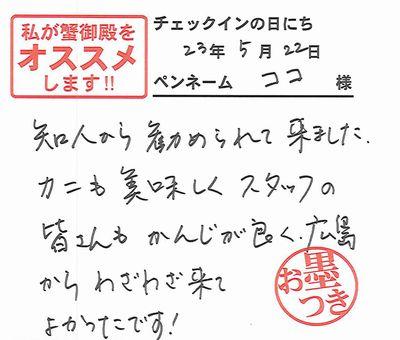 私が蟹御殿を
オススメ
します!!
チェックインの日にち
23年5月22日
ペンネーム ココ 様
知人から勧められて来ました.
カニも美味しくスタッフの
皆さんもかんじが良く、広島
からわざわざ来て
よかったです!
お墨つき